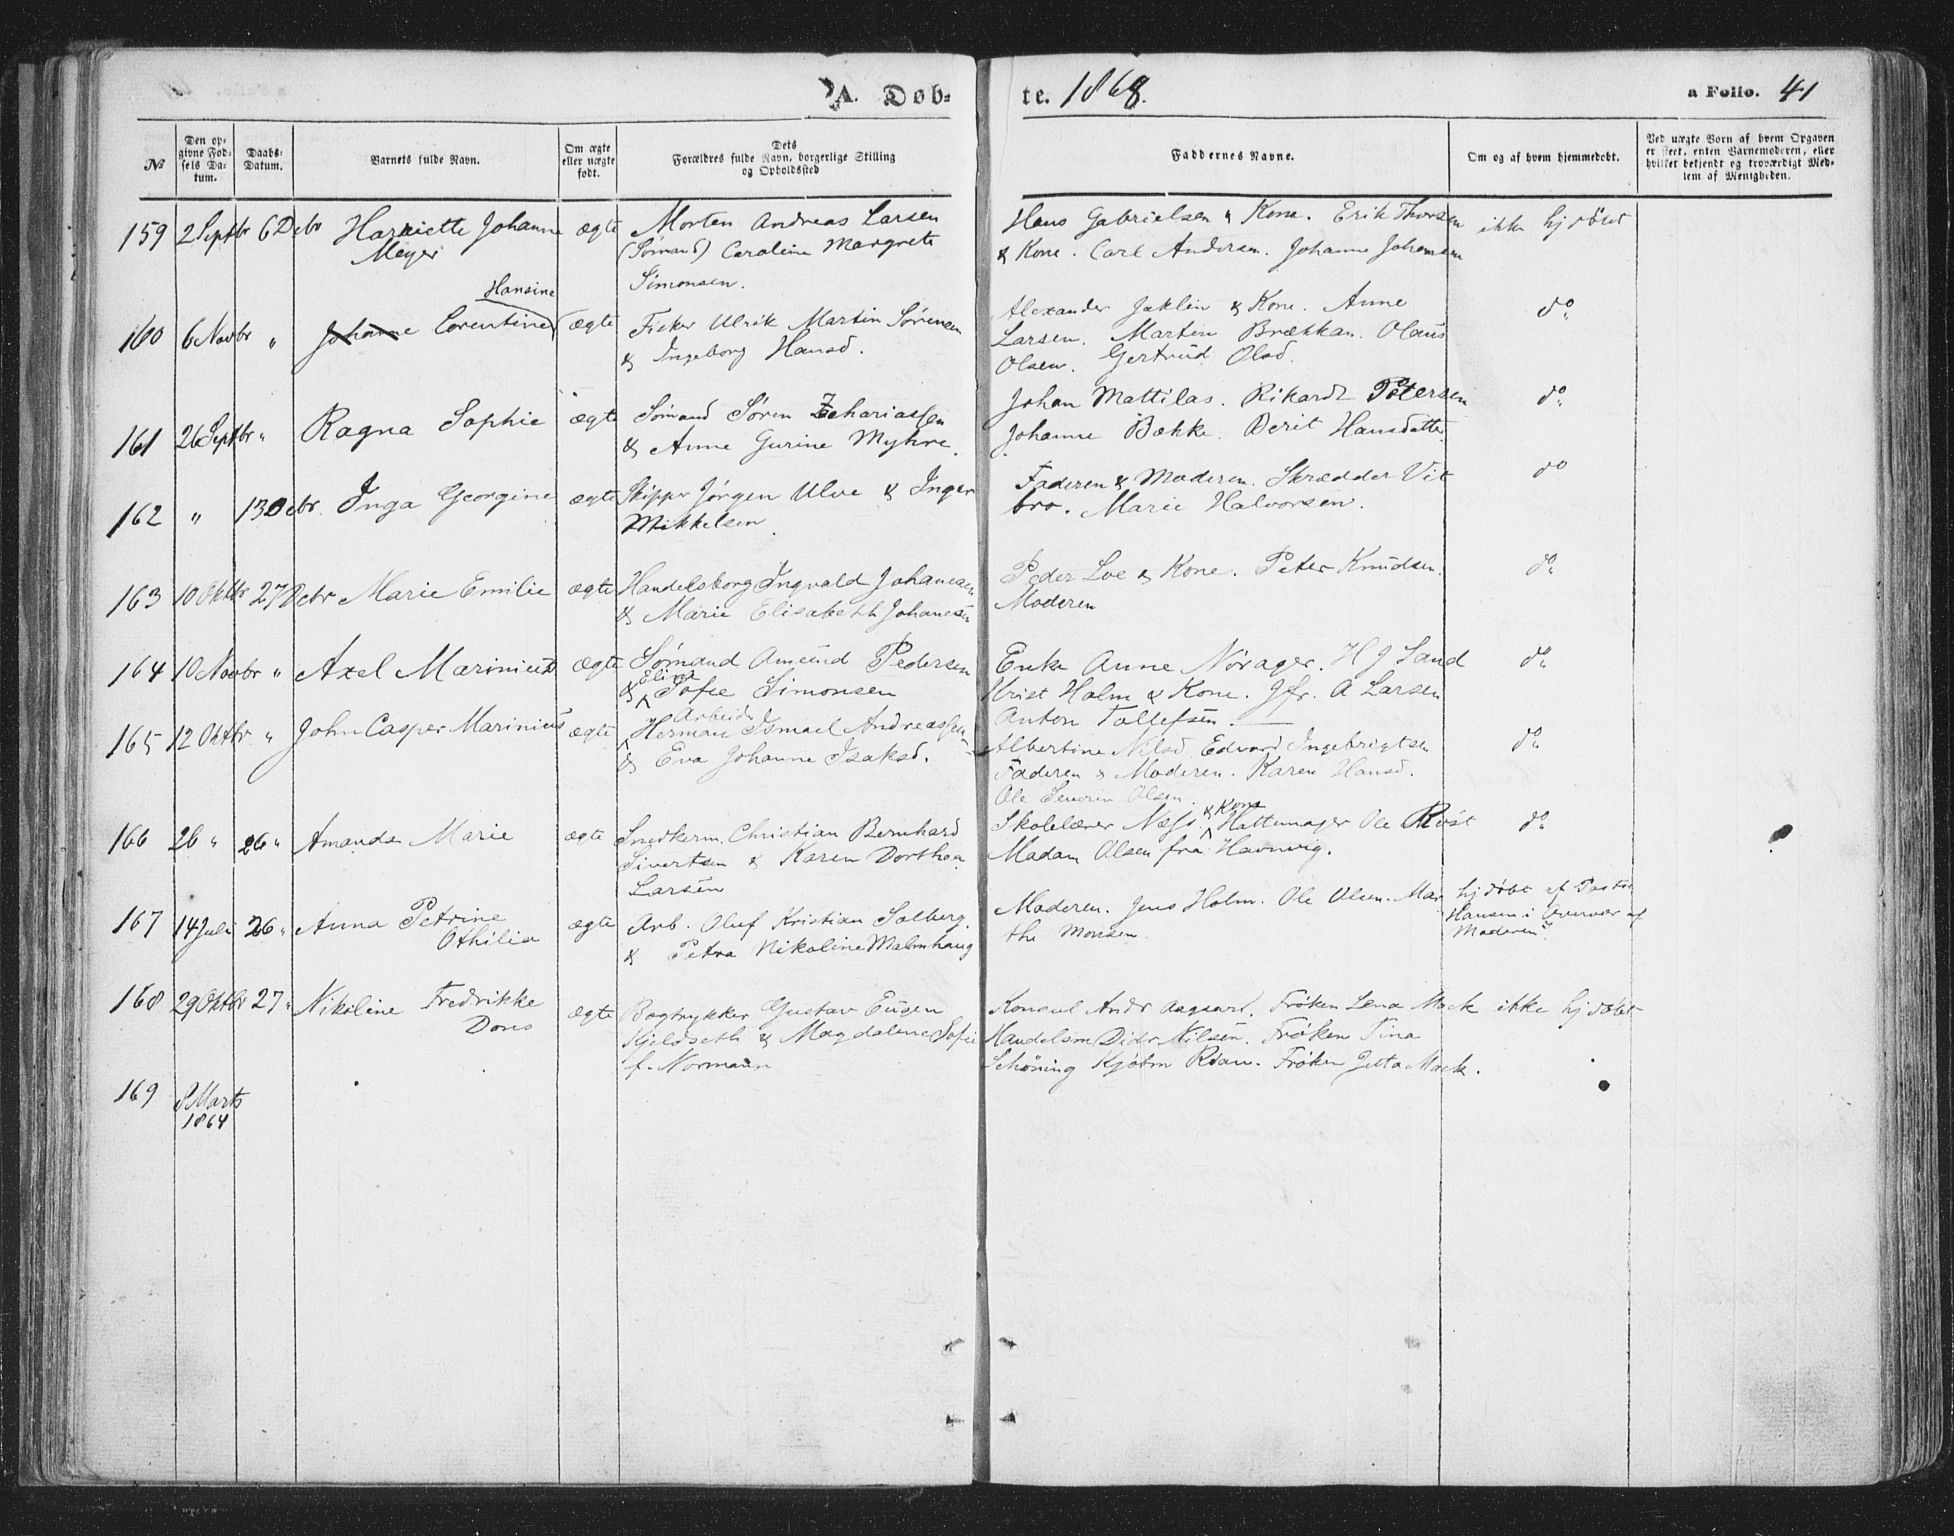 A. Døb-
te. 1868.
a Folio. 41
№
Den op-
givne Fød-
sels Da-
tum.
Daabs-
Datum.
Barnets fulde Navn.
Om ægte
eller uægte
født.
Dets
Forældres fulde Navn, borgerlige Stilling
og Opholdssted
Faddernes Navne.
Om og af hvem hjemmedøbt.
Ved uægte Børn af hvem Opgaven
er skeet, enten Barnemoderen, eller
hvilket bekjendt og troværdigt Med-
lem af Menigheden.
159 2 Septbr 6 Debr Harriette Johanne ægte Morten Andreas Larsen Hans Gabrielsen & Kone. Erik Thorsen ikke hj døbt
Meyer (Sømand) Caroline Margrete & Kone. Carl Andersen. Johanne Johansen
Simonsen.
Hansine
160 6 Novbr " Johanne Lorentine ægte Fisker Ulrik Martin Sørensen Alexander Jaklin & Kone. Anne do
& Ingeborg Hansd. Larsen. Martin Brækkan. Olaus
Olsen. Gertrud Olsd.
161 26 Septbr " Ragna Sophie ægte Sømand Søren Zachariassen Johan Mattilas. Rikardt Petersen do
& Anne Gurine Myhre. Johanne Bække. Berit Hansdatter
162 " 13 Debr. Inga Georgine ægte Skipper Jørgen Ulve & Inger Faderen & Moderen. Skrædder Vit do
Mikkelsen. bro. Marie Halvorsen.
163 10 Oktbr 27 Debr Marie Emilie ægte Handelsborg Ingvald Johansen Peder Loe & Kone. Peter Knudsen. do
& Marie Elisabeth Johansen Moderen
164 10 Novbr " Axel Marinius ægte Sømand Amund Pedersen Enke Anne Nørager. H J Sand do
& Elisa Sofie Simonsen Krist Holm & Kone. Jfr. A Larsen
Anton Tollefsen.
165 12 Oktbr " John Casper Marinius ægte Arbeider Herman Ismael Andreassen Albertine Nilsd. Edvard Ingebrigtsen do
& Eva Johanne Isaksd. Faderen & Moderen. Karen Hansd.
Ole Severin Olsen.
166 26 " 26 " Amanda Marie ægte Snedkerm. Christian Bernhard Skolelærer Næss & Kone Hattemager Ole Røst do
Sivertsen & Karen Dorthea Madam Olsen fra Havnvig.
Larsen
167 14 Juli 26 " Anna Petrine ægte Arb. Oluf Kristian Solberg. Moderen. Jens Holm. Ole Olsen. Mar hj døbt af Pastor
Othilia & Petra Nikoline Malmhaug the Monsen. Hansen i Overvær af
Moderen.
168 29 Oktbr 27 " Nikoline Fredrikke ægte Bogtrykker Gustav Eugen Konsul Andr Aagaard. Frøken Lena Mack ikke hj døbt
Dons Kjeldseth & Magdalene Sofie Handelsm Didr Nilsen. Frøken Tina
f. Normann Schøning Kjøbm Roan. Frøken Jetta Mack.
169 8 Marts
1864